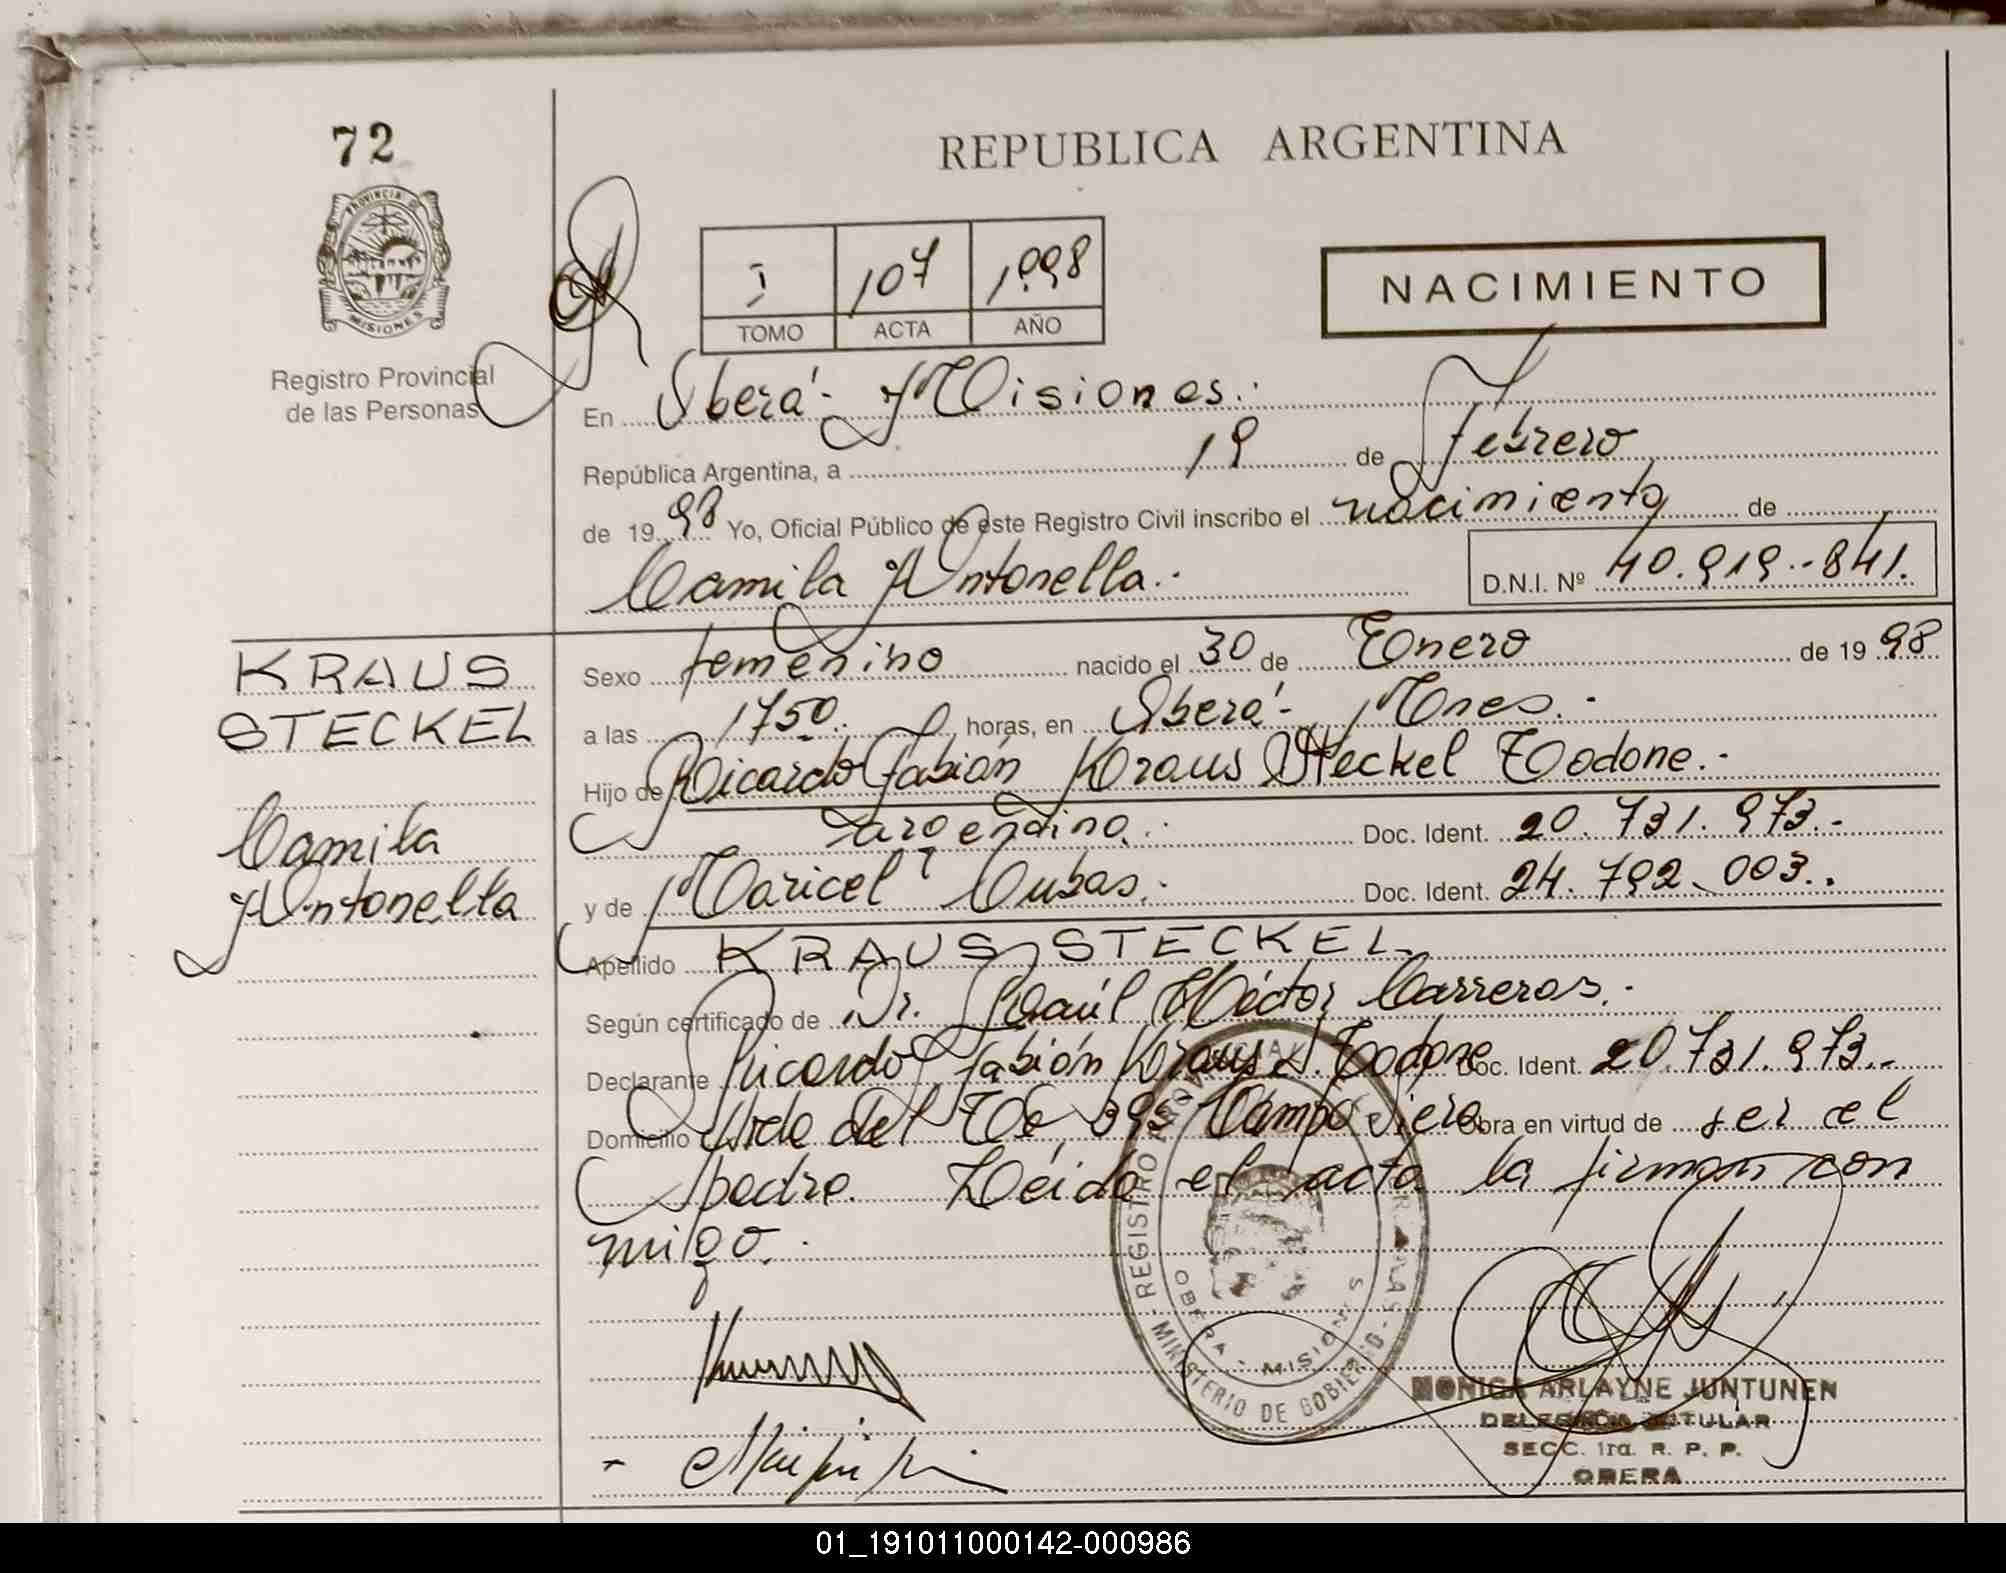 72
REPUBLICA ARGENTINA
PROVINCIA DE
MISIONES
Registro Provincial
de las Personas
I 107 1998
TOMO ACTA AÑO
NACIMIENTO
En Oberá - Misiones.
República Argentina, a 19 de Febrero
de 1998 Yo, Oficial Público de este Registro Civil inscribo el nacimiento de
Camila Antonella.
D.N.I. Nº 40.919.841.
KRAUS
STECKEL
Camila
Antonella
Sexo femenino nacido el 30 de Enero de 1998
a las 1750. horas, en Oberá - Mnes.
Hijo de Ricardo Fabián Kraus Steckel Todone.
argentino. Doc. Ident. 20.731.973.-
y de Maricel Cubas. Doc. Ident. 24.792.003.
Apellido KRAUS STECKEL
Según certificado de Dr. Raúl Héctor Carreras.
Declarante Ricardo Fabián Kraus S. Todone Doc. Ident. 20.731.973.-
Domicilio Avda del Té 395 Campo Viera Obra en virtud de ser el
padre. Leída el acta la firman con
migo.
REGISTRO PROVINCIAL
MINISTERIO DE GOBIERNO
OBERA - MISIONES
MONICA ARLAYNE JUNTUNEN
DELEGADA TITULAR
SECC. 1ra. R. P. P.
OBERA
01_191011000142-000986